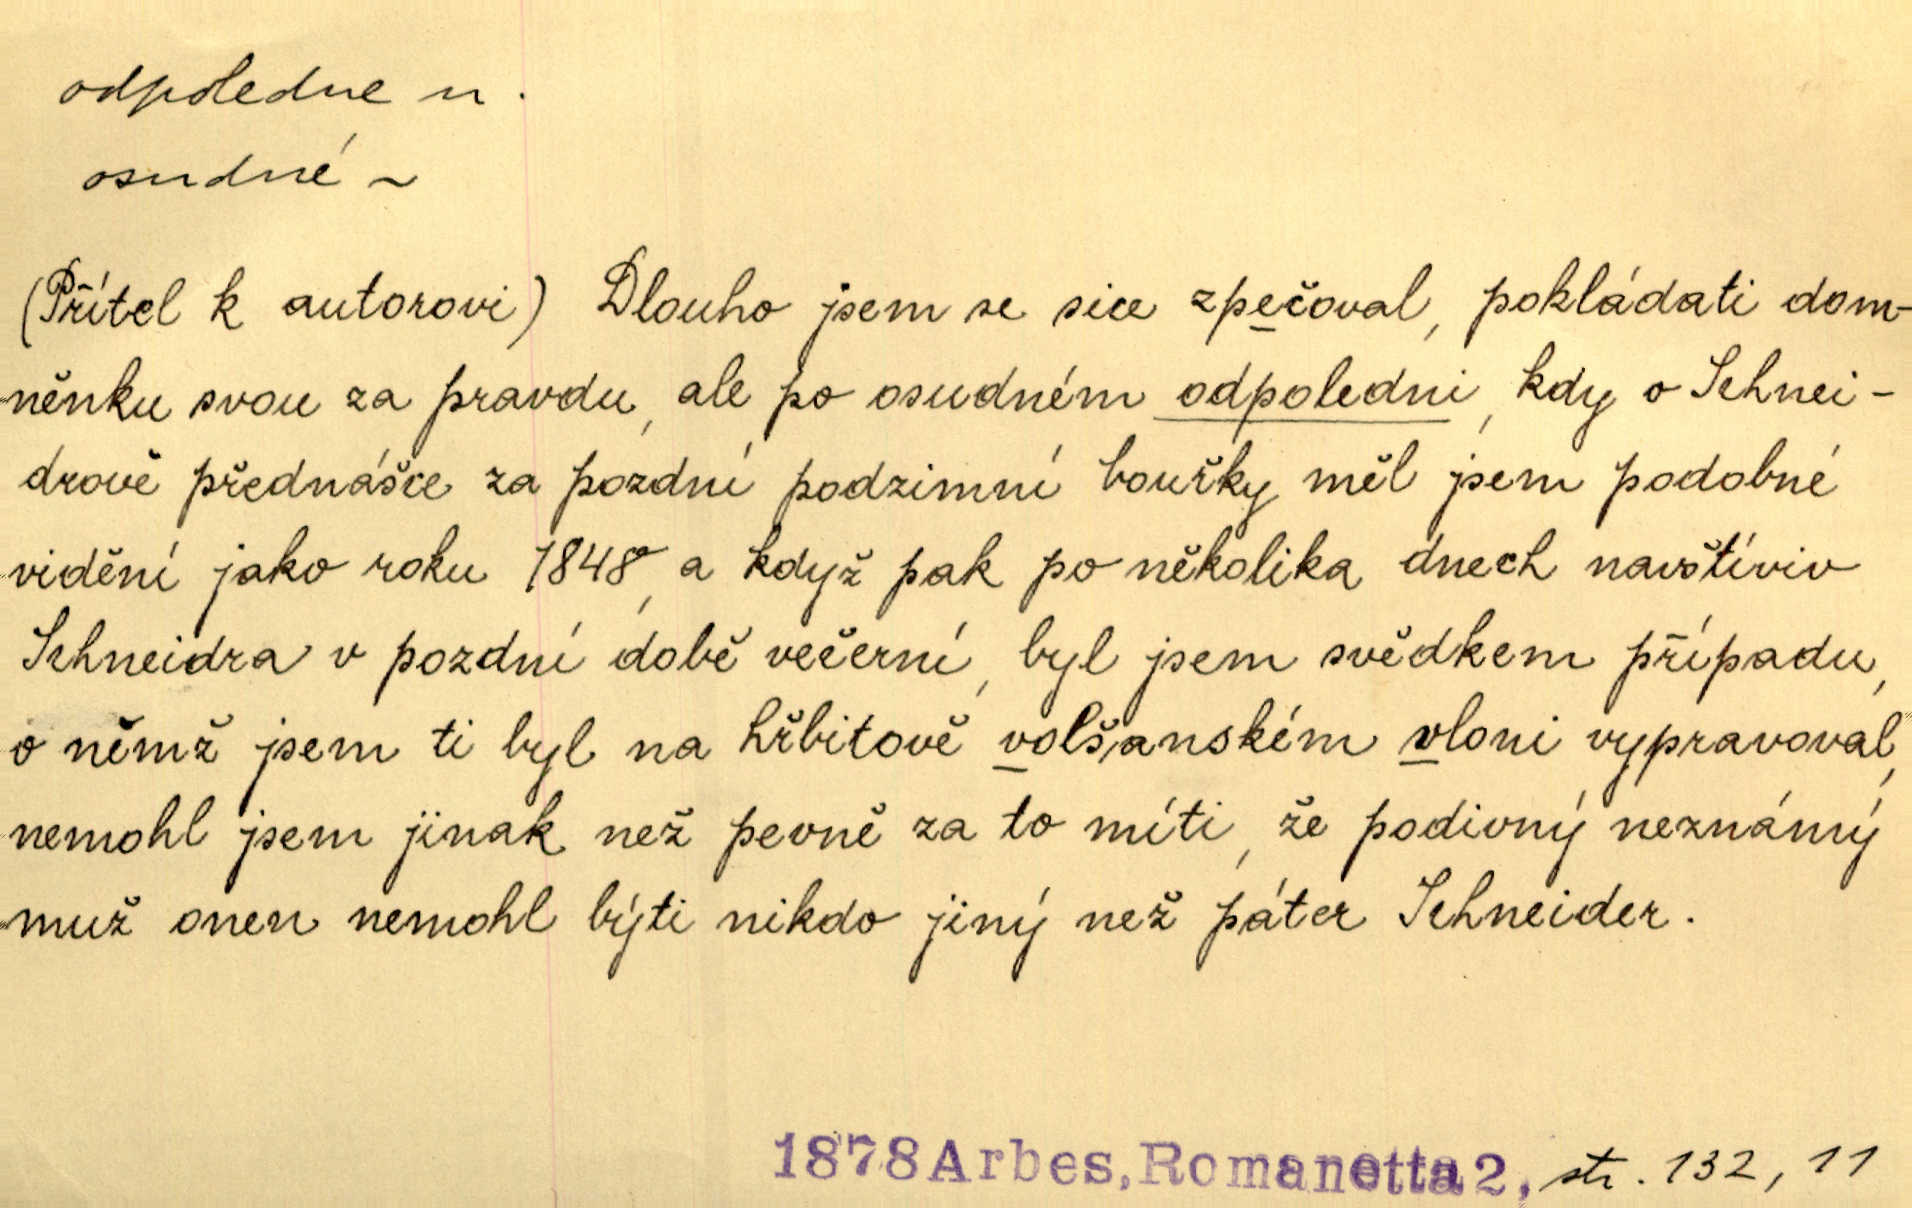 odpoledne n.
osudné ~
(Přítel k autorovi) Dlouho jsem se sice zpečoval, pokládati dom-
něnku svou za pravdu, ale po osudném odpoledni, kdy o Schnei-
drově přednášce za pozdní podzimní bouřky měl jsem podobné
vidění jako roku 1848, a když pak po několika dnech navštíviv
Schneidra v pozdní době večerní, byl jsem svědkem případu,
o němž jsem ti byl na hřbitově volšanském vloni vypravoval,
nemohl jsem jinak než pevně za to míti, že podivný neznámý
muž onen nemohl býti nikdo jiný než páter Schneider.
1878 Arbes, Romanetta 2, str. 132, 11